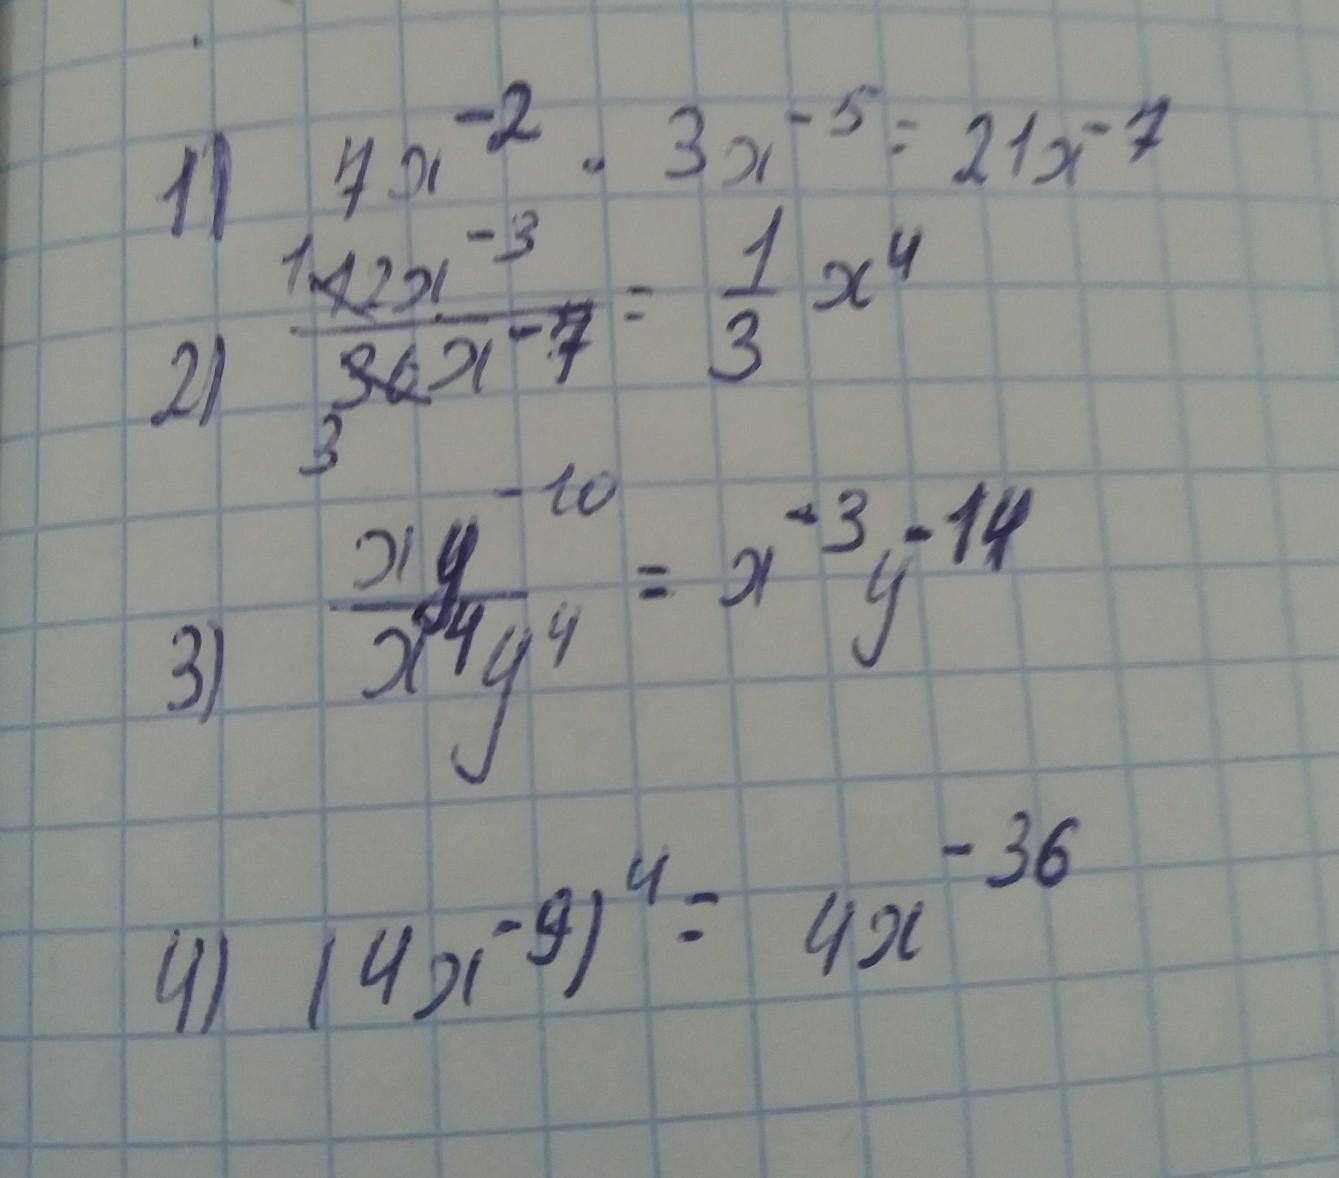 1) 7x^-2 · 3x^-5 = 21x^-7
2) 12x^-3 / 36x^-7 = 1/3 x^4
1 3
3) xy^-10 / x^4y^4 = x^-3y^-14
4) (4x^-9)^4 = 4x^-36